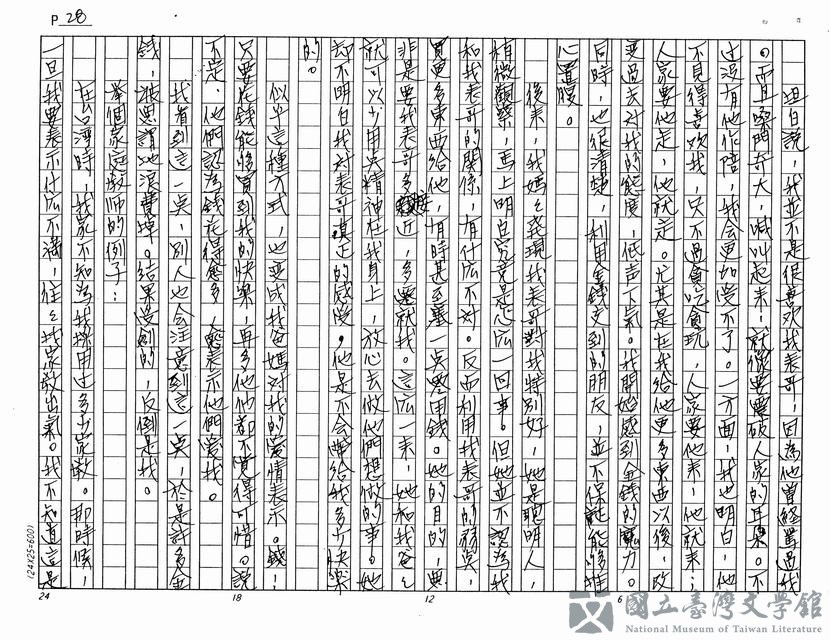 P 28
坦白說，我並不是很喜歡我表哥，因為他曾經罵過我
。而且嗓門奇大，喊叫起來，就像要震破人家的耳朵。不
過沒有他作陪，我會更加受不了。一方面，我也明白，他
不見得喜歡我，只不過貪吃貪玩，人家要他來，他就來；
人家要他走，他就走。尤其是在我給他更多東西以後，改
變過去對我的態度，低声下氣。我開始感到金錢的魔力。
同時，也很清楚，利用金錢交到的朋友，並不保証能够推
心置腹。
後來，我媽々發現我表哥對我特別好，她是聰明人，
稍微觀察，馬上明白究竟是怎広一回事。但她並不認為我
和我表哥的關係，有什広不对。反而利用我表哥的弱奌，
買更多東西給他，有時甚至塞一点零用錢。她的目的，無
非是要我表哥多接近，多遷就我。這広一來，她和我爸々
就可以少用奌精神在我身上，放心去做他們想做的事。她
却不明白我对表哥真正的感受。他是不会帶給我多少快樂
的。
似乎這種方式，也变成我爸媽对我的愛情表示。錢！
只要花錢能够買到我的快樂，再多他们都不覺得可惜。說
不定，他們認為錢花得愈多，愈表示他們愛我。
我看到這一点，別人也会注意到這一点，於是許多金
錢，被思謂地浪費掉。結果受創的，反倒是我。
舉個家庭教師的例子：
在台湾時，我家不知為我採用过多少家教。那時候，
一旦我要表示什広不滿，往々找家教出氣。我不知道這是
(24X25=600)
24
18
12
6
國立臺灣文學館
National Museum of Taiwan Literature